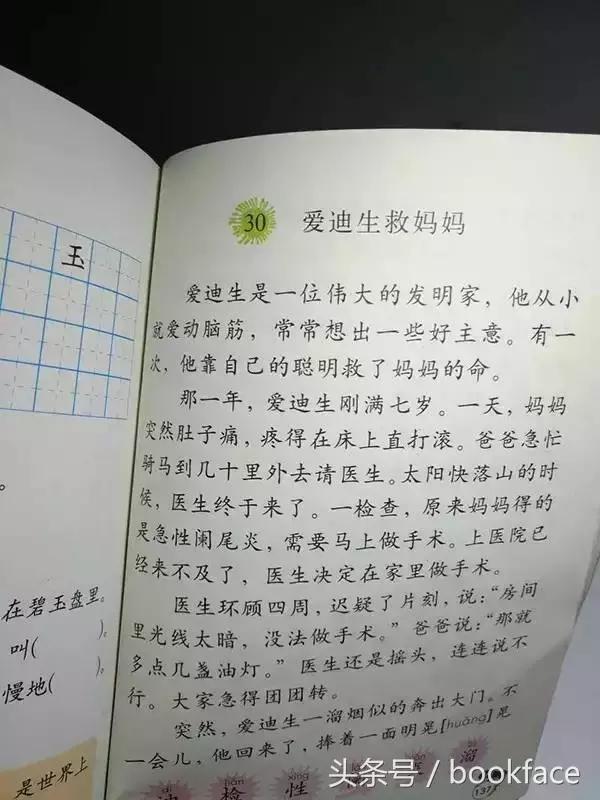 玉
在碧玉盘里。
叫(    )。
慢地(    )。
是世界上
30 爱迪生救妈妈
爱迪生是一位伟大的发明家，他从小
就爱动脑筋，常常想出一些好主意。有一
次，他靠自己的聪明救了妈妈的命。
那一年，爱迪生刚满七岁。一天，妈妈
突然肚子痛，疼得在床上直打滚。爸爸急忙
骑马到几十里外去请医生。太阳快落山的时
候，医生终于来了。一检查，原来妈妈得的
是急性阑尾炎，需要马上做手术。上医院已
经来不及了，医生决定在家里做手术。
医生环顾四周，迟疑了片刻，说：“房间
里光线太暗，没法做手术。”爸爸说：“那就
多点几盏油灯。”医生还是摇头，连连说不
行。大家急得团团转。
突然，爱迪生一溜烟似的奔出大门。不
一会儿，他回来了，捧着一面明晃[huǎng]晃
检 性 溜
137
头条号 / bookface